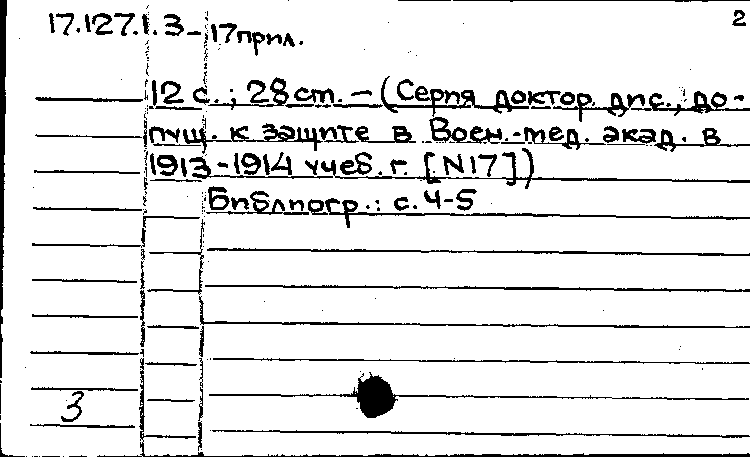 2
17.127.1.3-17прил.
12 с.; 28 cm. – (Серия доктор. дис., до-
пущ. к защите в Воен.-мед. акад. в
1913-1914 учеб. г. [N17])
Библиогр.: с. 4-5
3